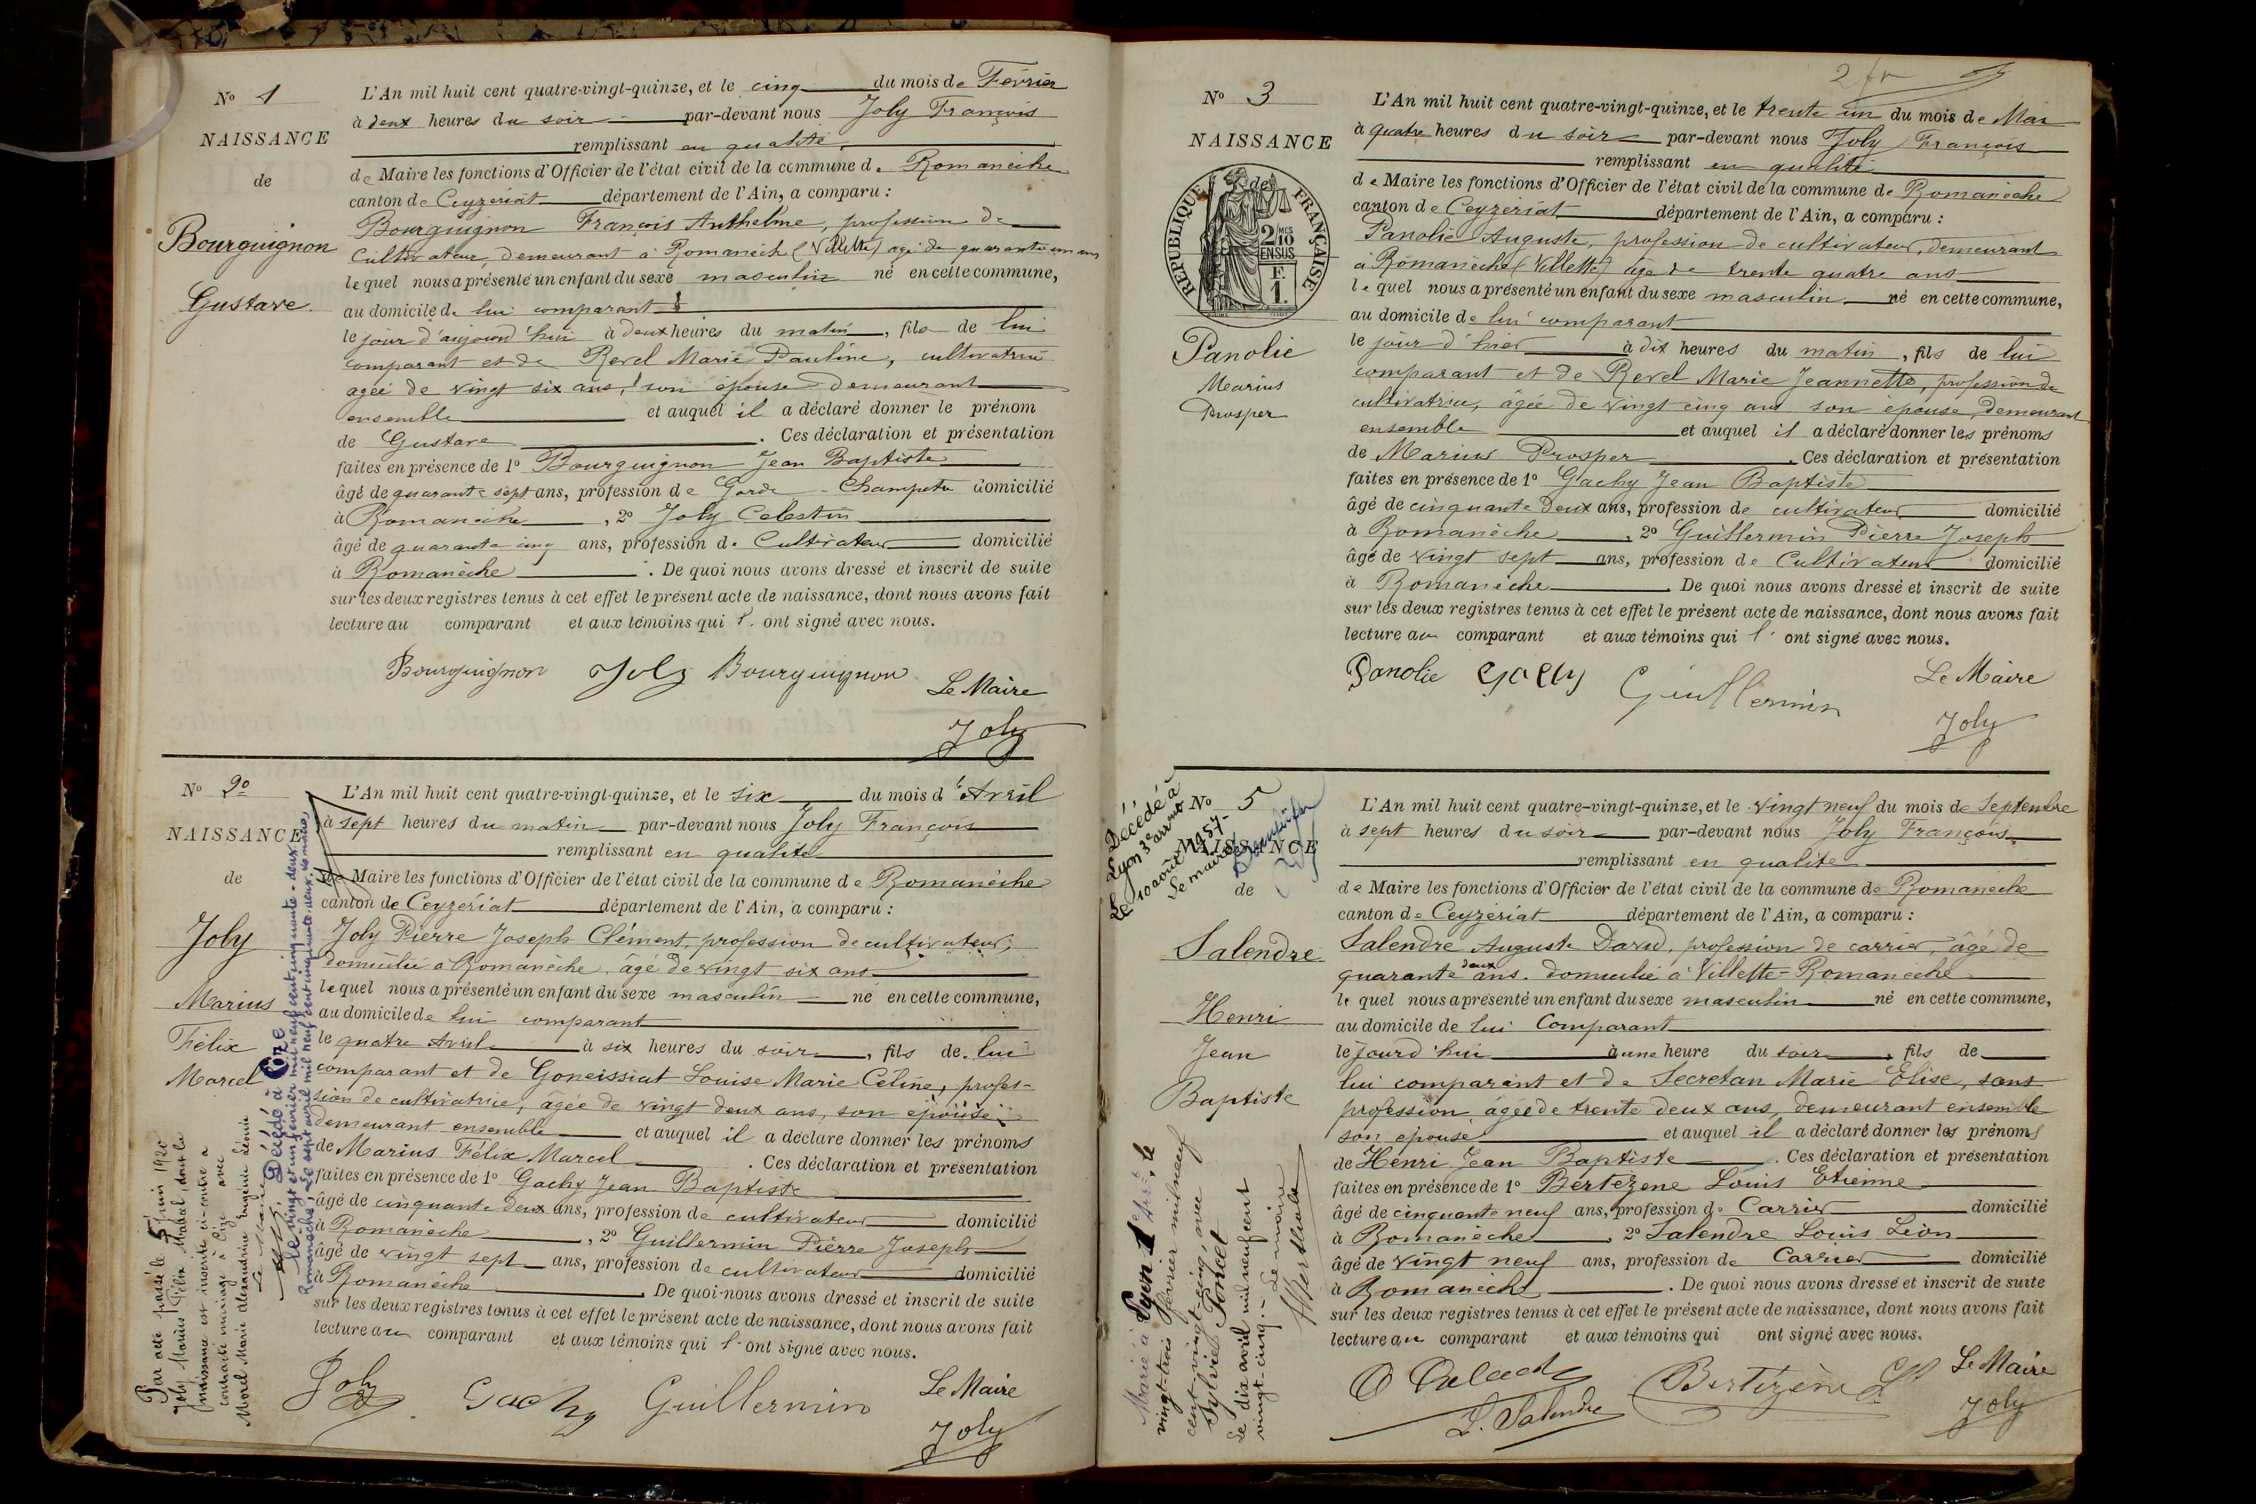 N° 1
NAISSANCE
de
Bourguignon
Gustave
L'An mil huit cent quatre-vingt-quinze, et le cinq du mois de Février
à deux heures du soir par-devant nous Joly François
remplissant en qualité
de Maire les fonctions d'Officier de l'état civil de la commune de Romanèche
canton de Ceyzériat département de l'Ain, a comparu :
Bourguignon François Anthelme, profession de
Cultivateur, demeurant à Romanèch (Villette) agé de quarante un ans
lequel nous a présenté un enfant du sexe masculin né en cette commune,
au domicile de lui comparant
le jour d'aujourd'hui à deux heures du matin, fils de lui
comparant et de Revel Marie Pauline, cultivatrice
agée de vingt six ans, son épouse demeurant
ensemble et auquel il a déclaré donner le prénom
de Gustave. Ces déclaration et présentation
faites en présence de 1° Bourguignon Jean Baptiste
âgé de quarante sept ans, profession de Garde-Champetre domicilié
à Romanèche, 2° Joly Celestin
âgé de quarante cinq ans, profession de Cultivateur domicilié
à Romanèche. De quoi nous avons dressé et inscrit de suite
sur les deux registres tenus à cet effet le présent acte de naissance, dont nous avons fait
lecture au comparant et aux témoins qui l' ont signé avec nous.
Bourguignon Joly Bourguignon Le Maire
Joly
N° 2°
NAISSANCE
de
Joly
Marius
Félix
Marcel
L'An mil huit cent quatre-vingt-quinze, et le six du mois d'Avril
à sept heures du matin par-devant nous Joly François
remplissant en qualité
de Maire les fonctions d'Officier de l'état civil de la commune de Romanèche
canton de Ceyzériat département de l'Ain, a comparu :
Joly Pierre Joseph Clément, profession de cultivateur,
domicilié à Romanèche âgé de vingt six ans
lequel nous a présenté un enfant du sexe masculin né en cette commune,
au domicile de lui comparant
le quatre Avril à six heures du soir, fils de lui
comparant et de Goneissiat Louise Marie Céline, profes-
sion de cultivatrice, âgée de vingt deux ans, son épouse
demeurant ensemble et auquel il a déclaré donner les prénoms
de Marius Félix Marcel. Ces déclaration et présentation
faites en présence de 1° Gachy Jean Baptiste
âgé de cinquante deux ans, profession de cultivateur domicilié
à Romanèche, 2° Guillermin Pierre Joseph
âgé de vingt sept ans, profession de cultivateur domicilié
à Romanèche. De quoi nous avons dressé et inscrit de suite
sur les deux registres tenus à cet effet le présent acte de naissance, dont nous avons fait
lecture au comparant et aux témoins qui l' ont signé avec nous.
Joly Gachy Guillermin Le Maire
Joly
Par acte passé le 5 juin 1920
Joly Marius Félix Marcel, dont la
naissance est inscrite ci-contre a
contracté mariage à Cize avec
Morel Marie Alexandrine Eugénie Léonie
Le Maire
Décédé à Cize
le vingt et un février mil neuf cent cinquante-deux
Romanèche, le sept avril mil neuf cent cinquante-deux. Le maire,
2 fr
N° 3
NAISSANCE
de
REPUBLIQUE FRANÇAISE
2/10 MES
EN SUS
F.
1.
Panolie
Marius
Prosper
L'An mil huit cent quatre-vingt-quinze, et le trente un du mois de Mai
à quatre heures du soir par-devant nous Joly François
remplissant en qualité
de Maire les fonctions d'Officier de l'état civil de la commune de Romanèche
canton de Ceyzériat département de l'Ain, a comparu :
Panolie Auguste, profession de cultivateur, demeurant
à Romanèche (Villette) âgé de trente quatre ans
lequel nous a présenté un enfant du sexe masculin né en cette commune,
au domicile de lui comparant
le jour d'hier à dix heures du matin, fils de lui
comparant et de Revel Marie Jeannette, profession de
cultivatrice, âgée de vingt cinq ans son épouse, demeurant
ensemble et auquel il a déclaré donner les prénoms
de Marius Prosper. Ces déclaration et présentation
faites en présence de 1° Gachy Jean Baptiste
âgé de cinquante deux ans, profession de cultivateur domicilié
à Romanèche, 2° Guillermin Pierre Joseph
âgé de vingt sept ans, profession de Cultivateur domicilié
à Romanèche. De quoi nous avons dressé et inscrit de suite
sur les deux registres tenus à cet effet le présent acte de naissance, dont nous avons fait
lecture au comparant et aux témoins qui l' ont signé avec nous.
Panolie Gachy Guillermin Le Maire
Joly
Décédé à
Lyon 3e arrot
Le 10 août 1957
Le maire
N° 5
NAISSANCE
de
Salendre
Henri
Jean
Baptiste
L'An mil huit cent quatre-vingt-quinze, et le vingt neuf du mois de Septembre
à sept heures du soir par-devant nous Joly François
remplissant en qualité
de Maire les fonctions d'Officier de l'état civil de la commune de Romanèche
canton de Ceyzériat département de l'Ain, a comparu :
Salendre Auguste David, profession de carrier, âgé de
quarante deux ans. domicilié à Villette-Romanèche
lequel nous a présenté un enfant du sexe masculin né en cette commune,
au domicile de lui Comparant
le jourd'hui à une heure du soir, fils de
lui comparant et de Secretan Marie Elise, sans
profession âgée de trente deux ans, demeurant ensemble
son épouse et auquel il a déclaré donner les prénoms
de Henri Jean Baptiste. Ces déclaration et présentation
faites en présence de 1° Bertézene Louis Etienne
âgé de cinquante neuf ans, profession de Carrier domicilié
à Romanèche, 2° Salendre Louis Léon
âgé de vingt neuf ans, profession de Carrier domicilié
à Romanèche. De quoi nous avons dressé et inscrit de suite
sur les deux registres tenus à cet effet le présent acte de naissance, dont nous avons fait
lecture au comparant et aux témoins qui ont signé avec nous.
L. Salendre Bertézène Le Maire
Joly
Marié à Lyon 1er Arrt, le
vingt-trois février mil neuf
cent vingt-cinq, avec
Sylvie Poncet
Le dix avril mil neuf cent
vingt-cinq. - Le maire